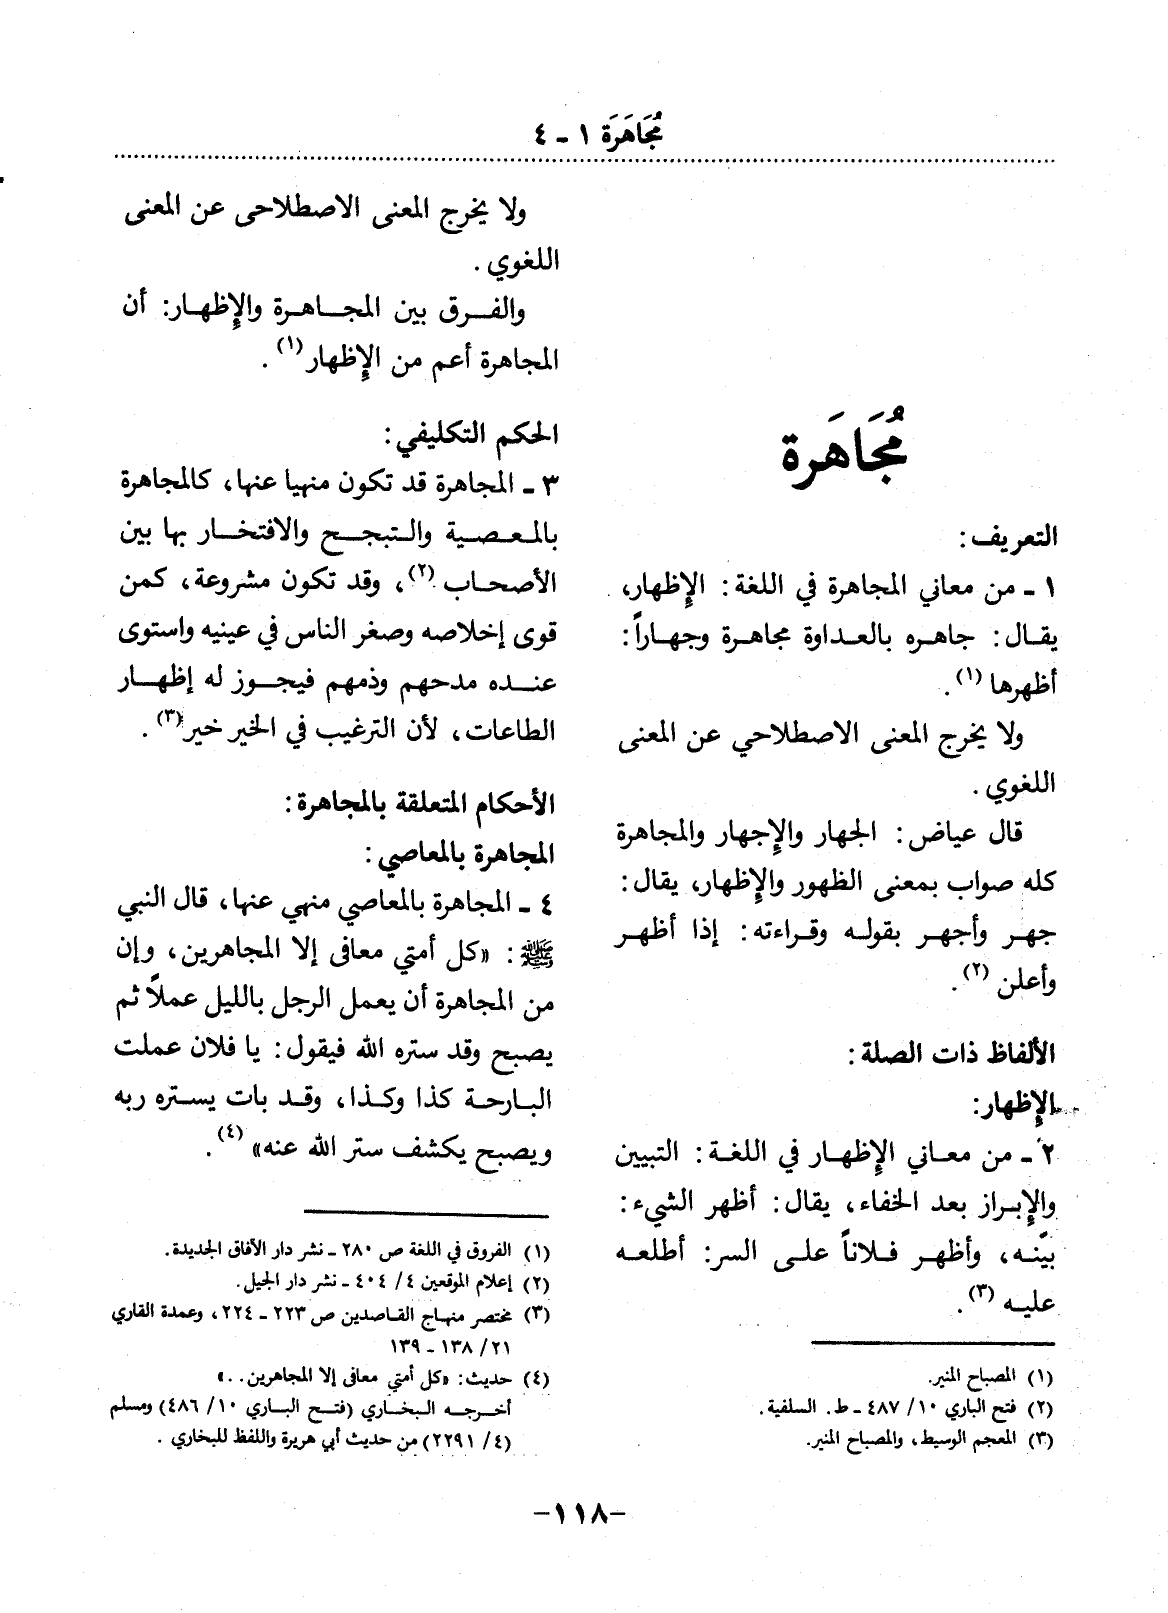 مُجَاهَرَة ١ - ٤
مُجَاهَرة
التعريف:
١ - من معاني المجاهرة في اللغة: الإظهار،
يقال: جاهره بالعداوة مجاهرة وجهاراً:
أظهرها (١).
ولا يخرج المعنى الاصطلاحي عن المعنى
اللغوي.
قال عياض: الجهار والإجهار والمجاهرة
كله صواب بمعنى الظهور والإظهار، يقال:
جهر وأجهر بقوله وقراءته: إذا أظهر
وأعلن (٢).
الألفاظ ذات الصلة:
الإظهار:
٢ - من معاني الإظهار في اللغة: التبيين
والإبراز بعد الخفاء، يقال: أظهر الشيء:
بيّنه، وأظهر فلاناً على السر: أطلعه
عليه (٣).
(١) المصباح المنير.
(٢) فتح الباري ١٠/ ٤٨٧ - ط. السلفية.
(٣) المعجم الوسيط، والمصباح المنير.
ولا يخرج المعنى الاصطلاحى عن المعنى
اللغوي.
والفرق بين المجاهرة والإظهار: أن
المجاهرة أعم من الإظهار (١).
الحكم التكليفي:
٣ - المجاهرة قد تكون منهيا عنها، كالمجاهرة
بالمعصية والتبجح والافتخار بها بين
الأصحاب (٢)، وقد تكون مشروعة، كمن
قوى إخلاصه وصغر الناس في عينيه واستوى
عنده مدحهم وذمهم فيجوز له إظهار
الطاعات، لأن الترغيب في الخير خير (٣).
الأحكام المتعلقة بالمجاهرة:
المجاهرة بالمعاصي:
٤ - المجاهرة بالمعاصي منهي عنها، قال النبي
ﷺ: «كل أمتي معافى إلا المجاهرين، وإن
من المجاهرة أن يعمل الرجل بالليل عملاً ثم
يصبح وقد ستره الله فيقول: يا فلان عملت
البارحة كذا وكذا، وقد بات يستره ربه
ويصبح يكشف ستر الله عنه» (٤).
(١) الفروق في اللغة ص ٢٨٠ - نشر دار الآفاق الجديدة.
(٢) إعلام الموقعين ٤/ ٤٠٤ - نشر دار الجيل.
(٣) مختصر منهاج القاصدين ص ٢٢٣ - ٢٢٤، وعمدة القاري
٢١/ ١٣٨ - ١٣٩
(٤) حديث: «كل أمتي معافى إلا المجاهرين..»
أخرجه البخاري (فتح الباري ١٠/ ٤٨٦) ومسلم
(٤/ ٢٢٩١) من حديث أبي هريرة واللفظ للبخاري.
-١١٨-